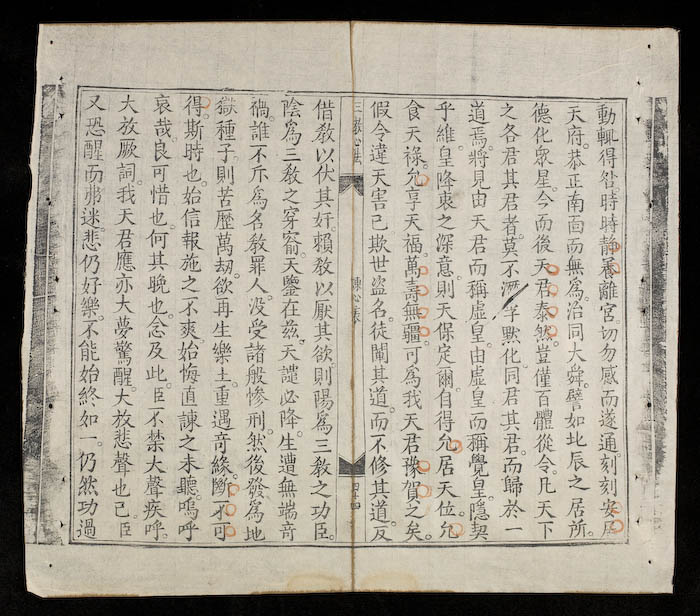 動輒得咎時時靜養離宮切勿感而遂通刻刻安居
天府恭正南面而無為治同大舜譬如北辰之居所
德化眾星今而後天君泰然豈僅百體從令凡天下
之各君其君者莫不潛孚默化同君其君而歸於一
道焉將見由天君而稱虛皇由虛皇而稱覺皇隱契
乎維皇降衷之深意則天保定爾自得允居天位允
食天祿允享天福萬壽無疆可為我天君豫賀之矣
假令違天害己欺世盜名徒闡其道而不修其道反
三教心法
諫心表
四十四
借教以伏其奸賴教以厭其欲則陽為三教之功臣
陰為三教之穿窬天鑒在茲天譴必降生遭無端奇
禍誰不斥為名教罪人沒受諸般慘刑然後發為地
獄種子則苦歷萬劫欲再生樂土重遇奇緣斷不可
得斯時也始信報施之不爽始悔直諫之未聽嗚呼
哀哉良可惜也何其晚也念及此臣不禁大聲疾呼
大放厥詞我天君應亦大夢驚醒大放悲聲也已臣
又恐醒而弗迷悲仍好樂不能始終如一仍然功過